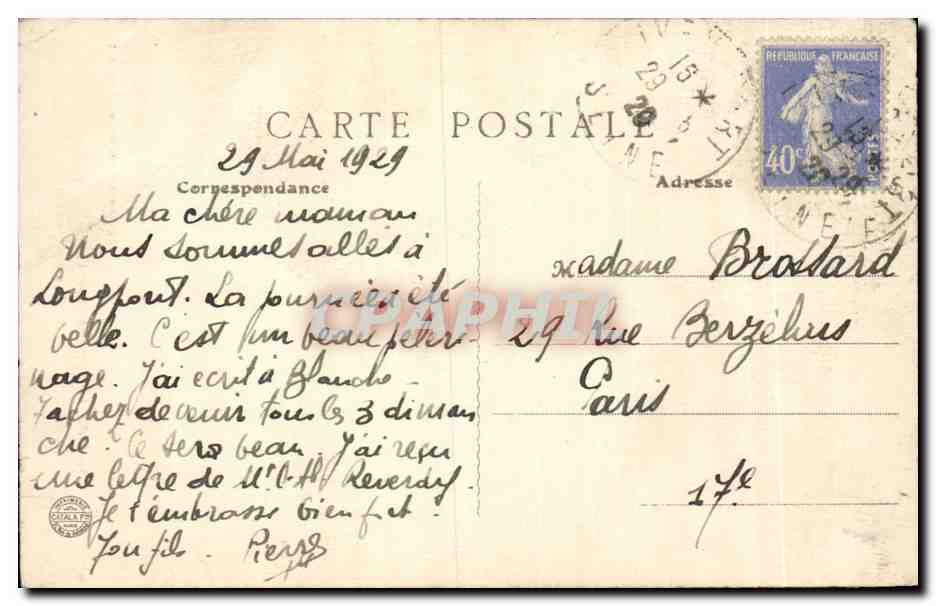 CARTE POSTALE
29 Mai 1929
Correspondance
Ma chère maman
Nous sommes allés à
Longpont. La journée a été
belle. C'est un beau péleri-
nage. J'ai écrit à Blanche
Tachez de venir tous les 3 diman
che. Ce sera beau. J'ai reçu
une lettre de Mr l'Abbé Reverdy.
Je t'embrasse bien fort.
Ton fils. Pierre
Adresse
Madame Brossard
29 Rue Berzélius
Paris
17e
REPUBLIQUE FRANÇAISE
40c
POSTES
CPAPHIL
IMPRIMERIE
CATALA Frs
PARIS